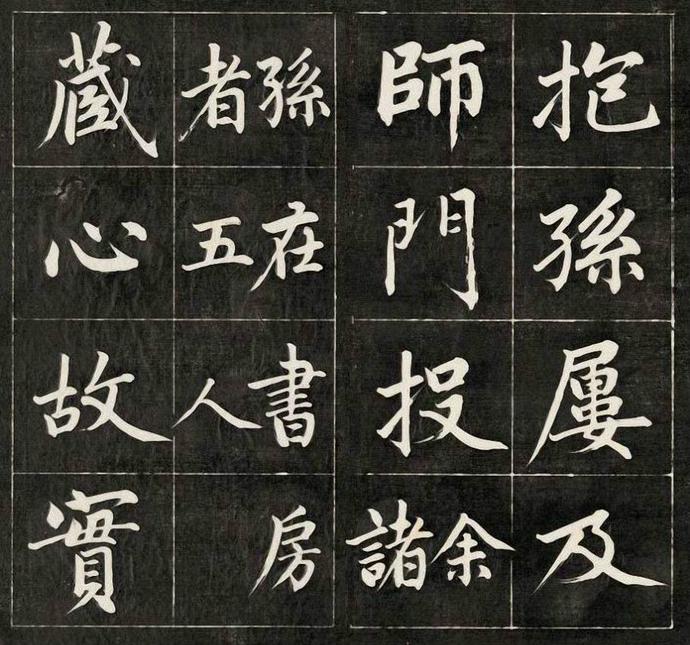 抱孫屢及
師門投余諸
孫在書房
者五人
藏心故實